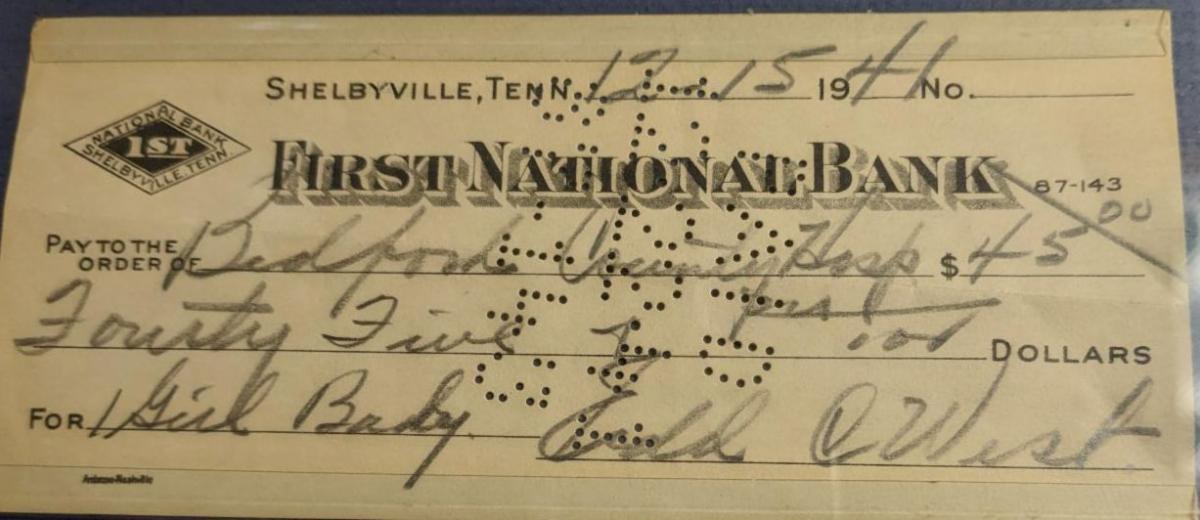 SHELBYVILLE, TENN. 12-15 1941 No.
NATIONAL BANK
1ST
SHELBYVILLE, TENN.
FIRST NATIONAL BANK 87-143
PAY TO THE
ORDER OF Bedford County Hosp $ 45 00
Fourty Five & 100 DOLLARS
FOR 1 Girl Baby C West